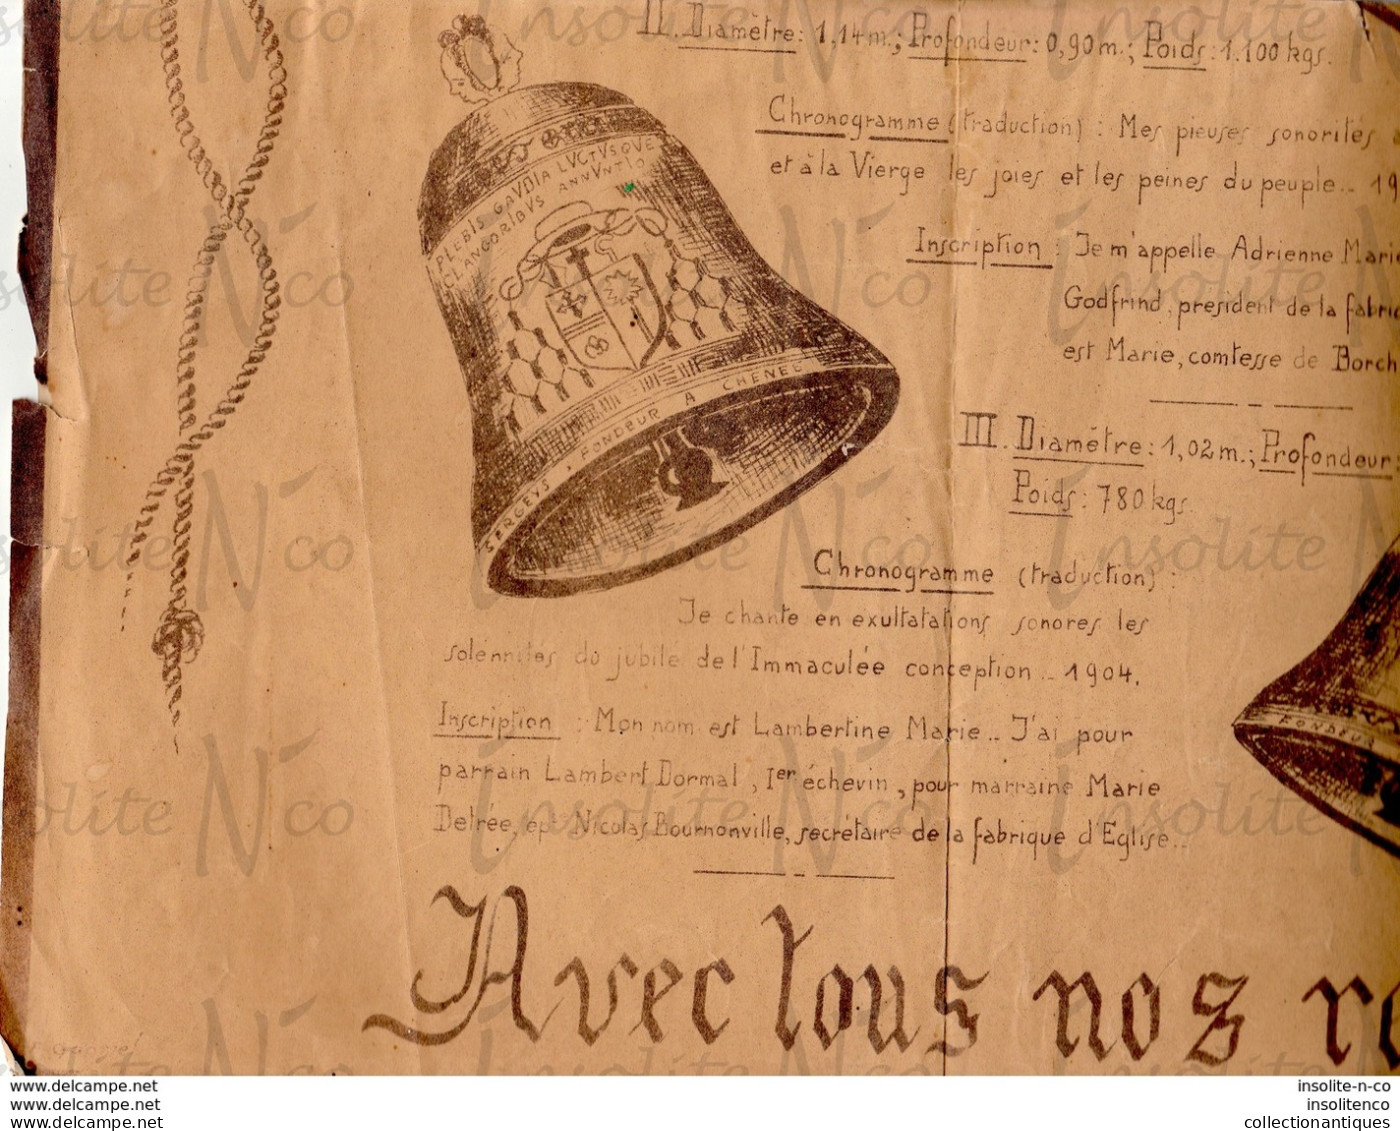 II. Diamètre: 1,14m.; Profondeur: 0,90m.; Poids: 1.100 kgs.
Chronogramme (traduction) : Mes pieuses sonorités
et à la Vierge les joies et les peines du peuple.. 19
Inscription : Je m'appelle Adrienne Marie
Godfrind, president de la fabri
est Marie, comtesse de Borch
PLEBIS GAVDIA LVCTVSQVE
CLANGORIBVS ANNVNTIO
SERGEYS . FONDEUR A CHENEE
III. Diamétre: 1,02m.; Profondeur:
Poids: 780 kgs.
Chronogramme (traduction) :
Je chante en exultatations sonores les
solennités du jubile de l'Immaculée conception .. 1904.
Inscription : Mon nom est Lambertine Marie .. J'ai pour
parrain Lambert Dormal, Ier échevin, pour marraine Marie
Delrée, ept Nicolas Bournonville, secrétaire de la fabrique d'Eglise..
FONDEUR
Avec tous nos re
Insolite N'co
www.delcampe.net
www.delcampe.net
www.delcampe.net
insolite-n-co
insolitenco
collectionantiques